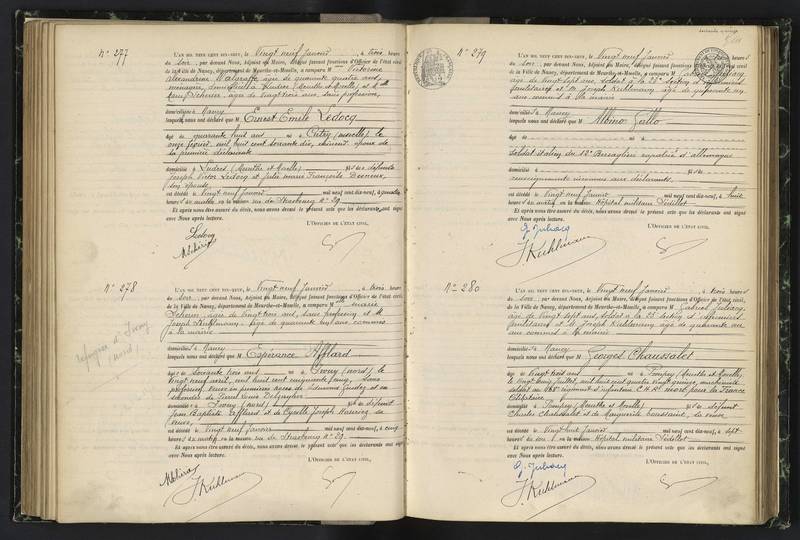 N° 277
L'AN MIL NEUF CENT DIX-NEUF, le Vingt neuf Janvier, à trois heures
du Soir, par devant Nous, Adjoint au Maire, délégué faisant fonctions d'Officier de l'état civil
de la Ville de Nancy, département de Meurthe-et-Moselle, a comparu M Victorine
Alexandrine agée de quarante quatre ans
ménagère, domiciliée à Ludres (Meurthe et Moselle) et Mlle
agée de vingt trois ans, sans profession,
domiciliées à Nancy
lesquels nous ont déclaré que M Ernest Emile Ledocq
agé de quarante huit ans né à Cutry (Moselle) le
onze mil huit cent soixante dix, époux de
la première déclarante
domicilié à Ludres (Meurthe et Moselle) fils de défunts
Joseph Victor Ledocq et Julie Marie Françoise
son épouse
est décédé le vingt neuf Janvier mil neuf cent dix-neuf, à
heures du matin, en la maison rue de Strasbourg n° 29.
Et après nous être assuré du décès, nous avons dressé le présent acte que les déclarants ont signé
avec Nous après lecture.
L'OFFICIER DE L'ÉTAT CIVIL,
Ledocq
N° 278
réfugiée d'
(nord)
L'AN MIL NEUF CENT DIX-NEUF, le Vingt neuf Janvier, à trois heures
du Soir, par devant Nous, Adjoint au Maire, délégué faisant fonctions d'Officier de l'état civil
de la Ville de Nancy, département de Meurthe-et-Moselle, a comparu Mlle Marie
agée de vingt trois ans, sans profession et M
Joseph Kuhlmann, agé de quarante un ans commis
à la mairie
domiciliés à Nancy
lesquels nous ont déclaré que M Espérance Afflard
agée de Soixante trois ans née à (nord) le
vingt neuf avril, mil huit cent cinquante cinq, Sans
profession, veuve en premières noces de et en
secondes de Louis
domiciliée à (nord) fille de défunt
Jean Baptiste et de Joseph
veuve
est décédée le vingt neuf Janvier mil neuf cent dix-neuf, à cinq
heures du matin, en la maison rue de Strasbourg n° 29.
Et après nous être assuré du décès, nous avons dressé le présent acte que les déclarants ont signé
avec Nous après lecture.
L'OFFICIER DE L'ÉTAT CIVIL,
J. Kuhlmann
N° 279
L'AN MIL NEUF CENT DIX-NEUF, le Vingt neuf Janvier, à trois heures
du Soir, par devant Nous, Adjoint au Maire, délégué faisant fonctions d'Officier de l'état civil
de la Ville de Nancy, département de Meurthe-et-Moselle, a comparu M Gabriel
agé de vingt sept ans, soldat à la 23e Section d'infirmiers
militaires et M Joseph Kuhlmann agé de quarante un
ans commis à la mairie
domiciliés à Nancy
lesquels nous ont déclaré que M Albino Gallo
agé de né à
Soldat italien du 12e Bersagliers rapatrié d'Allemagne
domicilié à fils de
renseignements inconnus aux déclarants
est décédé le vingt neuf Janvier mil neuf cent dix-neuf, à huit
heures du matin, en la maison Hôpital militaire Sédillot
Et après nous être assuré du décès, nous avons dressé le présent acte que les déclarants ont signé
avec Nous après lecture.
L'OFFICIER DE L'ÉTAT CIVIL,
J. Kuhlmann
N° 280
L'AN MIL NEUF CENT DIX-NEUF, le Vingt neuf Janvier, à trois heures
du Soir, par devant Nous, Adjoint au Maire, délégué faisant fonctions d'Officier de l'état civil
de la Ville de Nancy, département de Meurthe-et-Moselle, a comparu M Gabriel
agé de vingt sept ans, soldat à la 23 section d'infirmiers
militaires et M Joseph Kuhlmann agé de quarante un
ans commis à la mairie
domiciliés à Nancy
lesquels nous ont déclaré que M Georges Chaussalet
agé de vingt trois ans né à Pompey (Meurthe et Moselle)
le vingt Juillet, mil huit cent quatre vingt quinze,
soldat au 168e régiment d'infanterie mort pour la France
Célibataire
domicilié à Pompey (Meurthe et Moselle) fils de défunt
Charles Chaussalet et de Marguerite Toussaint, sa veuve
est décédé le vingt huit Janvier mil neuf cent dix-neuf, à sept
heures du soir, en la maison Hôpital militaire Sédillot
Et après nous être assuré du décès, nous avons dressé le présent acte que les déclarants ont signé
avec Nous après lecture.
L'OFFICIER DE L'ÉTAT CIVIL,
J. Kuhlmann